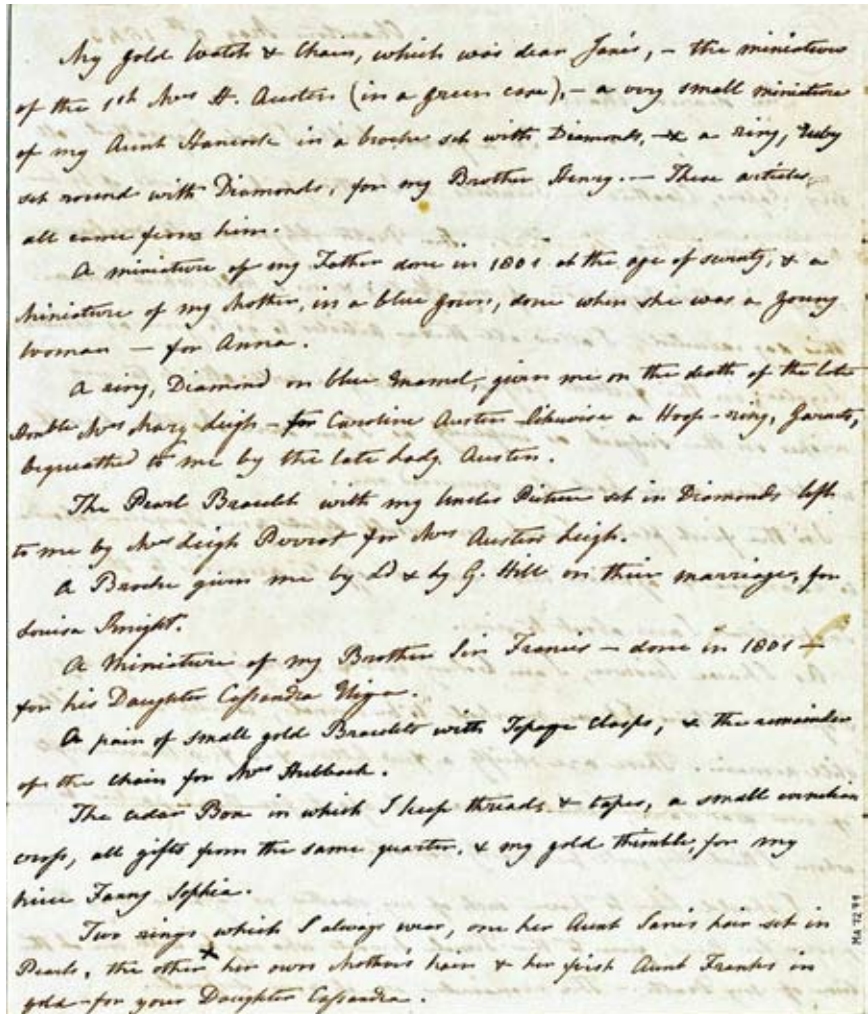 My gold Watch & Chain, which was dear Jane's, – the miniature
of the 1st Mrs H. Austen (in a green case), – a very small miniature
of my Aunt Hancock in a broche set with Diamonds, – & a ring, Ruby
set round with Diamonds, for my Brother Henry. – These articles
all came from him.
A miniature of my Father done in 1801 at the age of seventy, & a
Miniature of my Mother, in a blue gown, done when she was a young
woman – for Anna.
A ring, Diamond on blue Enamel, given me on the death of the late
Honble Mrs Mary Leigh – for Caroline Austen likewise a Hoop-ring, Garnets,
bequeathed to me by the late Lady Austen.
The Pearl Bracelet with my Uncles Picture set in Diamonds left
to me by Mrs Leigh Perrot for Mrs Austen Leigh.
A Broche given me by Ld & Ly G. Hill on their marriage, for
Louisa Knight.
A Miniature of my Brother Sir Francis – done in 1801 –
for his Daughter Cassandra Eliza.
A pair of small gold Bracelets with Topaze Clasps, & the remainder
of the chain for Mrs Hulback.
The cedar Box in which I keep threads & tapes, a small cornelian
cross, all gifts from the same quarter, & my gold thimble, for my
niece Fanny Sophia.
Two rings which I always wear, one her Aunt Jane's hair set in
Pearls, the other x her own Mother's hair & her first Aunt Frank's in
gold – for your Daughter Cassandra.